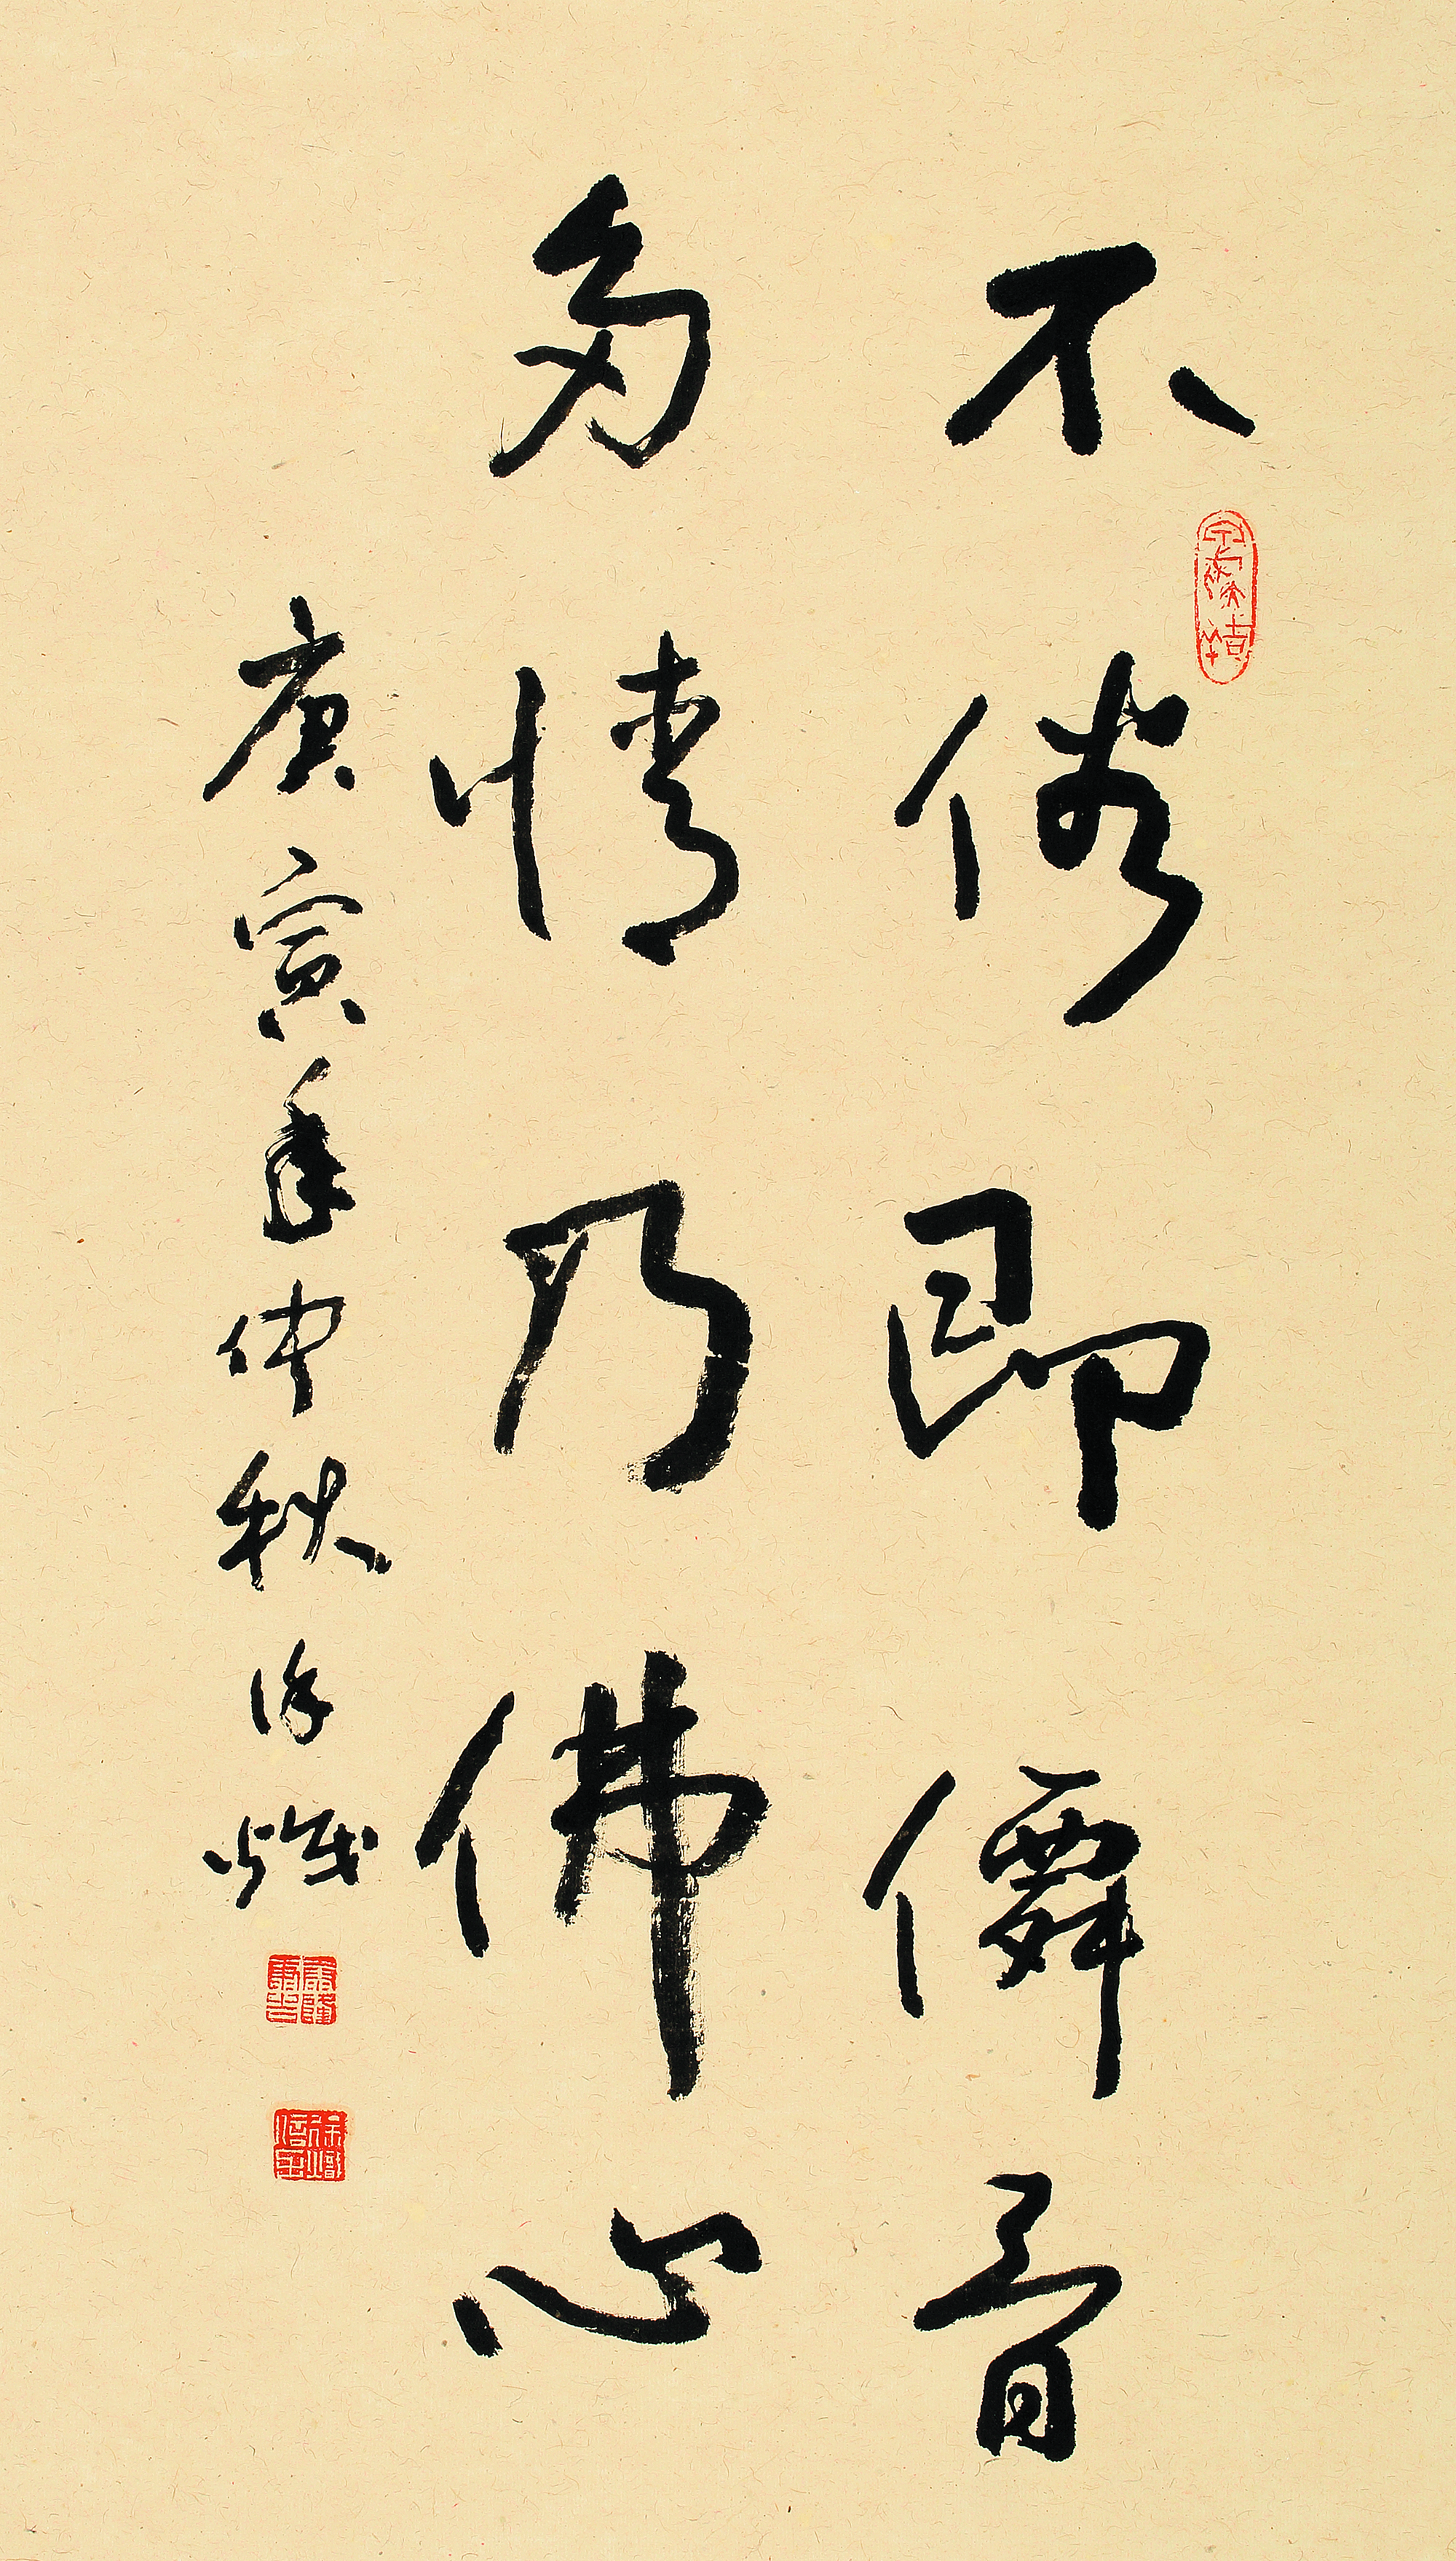 不俗即僊骨
多情乃佛心
庚寅年仲秋徐炽